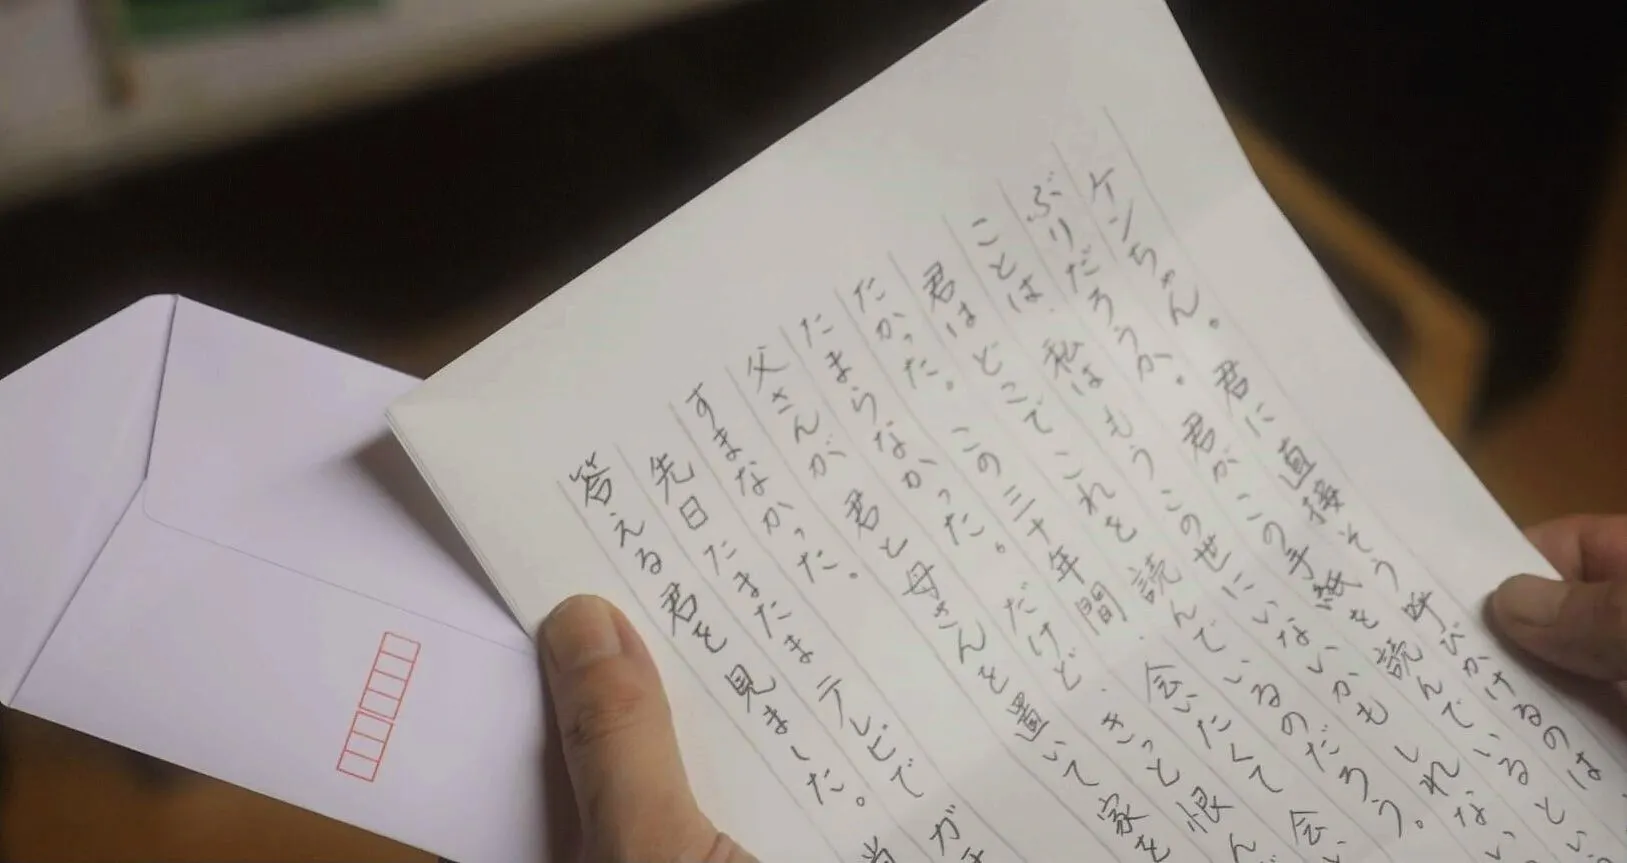 ケンちゃん。君に直接そう呼びかけるのは
ぶりだろうか。君がこの手紙を読んでいるとい
ことは、私はもうこの世にいないかもしれない
君はどこでこれを読んでいるのだろう。
たかった。この三十年間、会いたくて会い
たまらなかった。だけど、きっと恨ん
父さんが君と母さんを置いて家を
すまなかった。
先日たまたまテレビでガ
答える君を見ました。